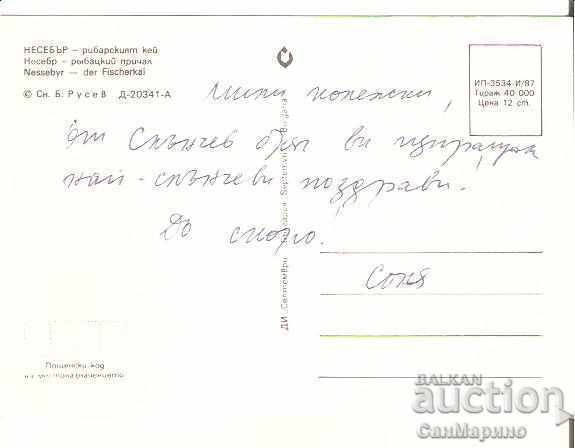 НЕСЕБЪР — рибарският кей
Несебр — рыбацкий причал
Nessebyr — der Fischerkai
© Сн. Б. Русев Д-20341-А
ИП-3534-И/87
Тираж 40 000
Цена 12 ст.
Мили колежки,
От Слънчев бряг ви изпращам
най-слънчеви поздрави.
До скоро.
Соня
ДИ Септември България Septemvri Bulgaria
Пощенски код
на местоназначението
BALKAN
auction
СанМарино